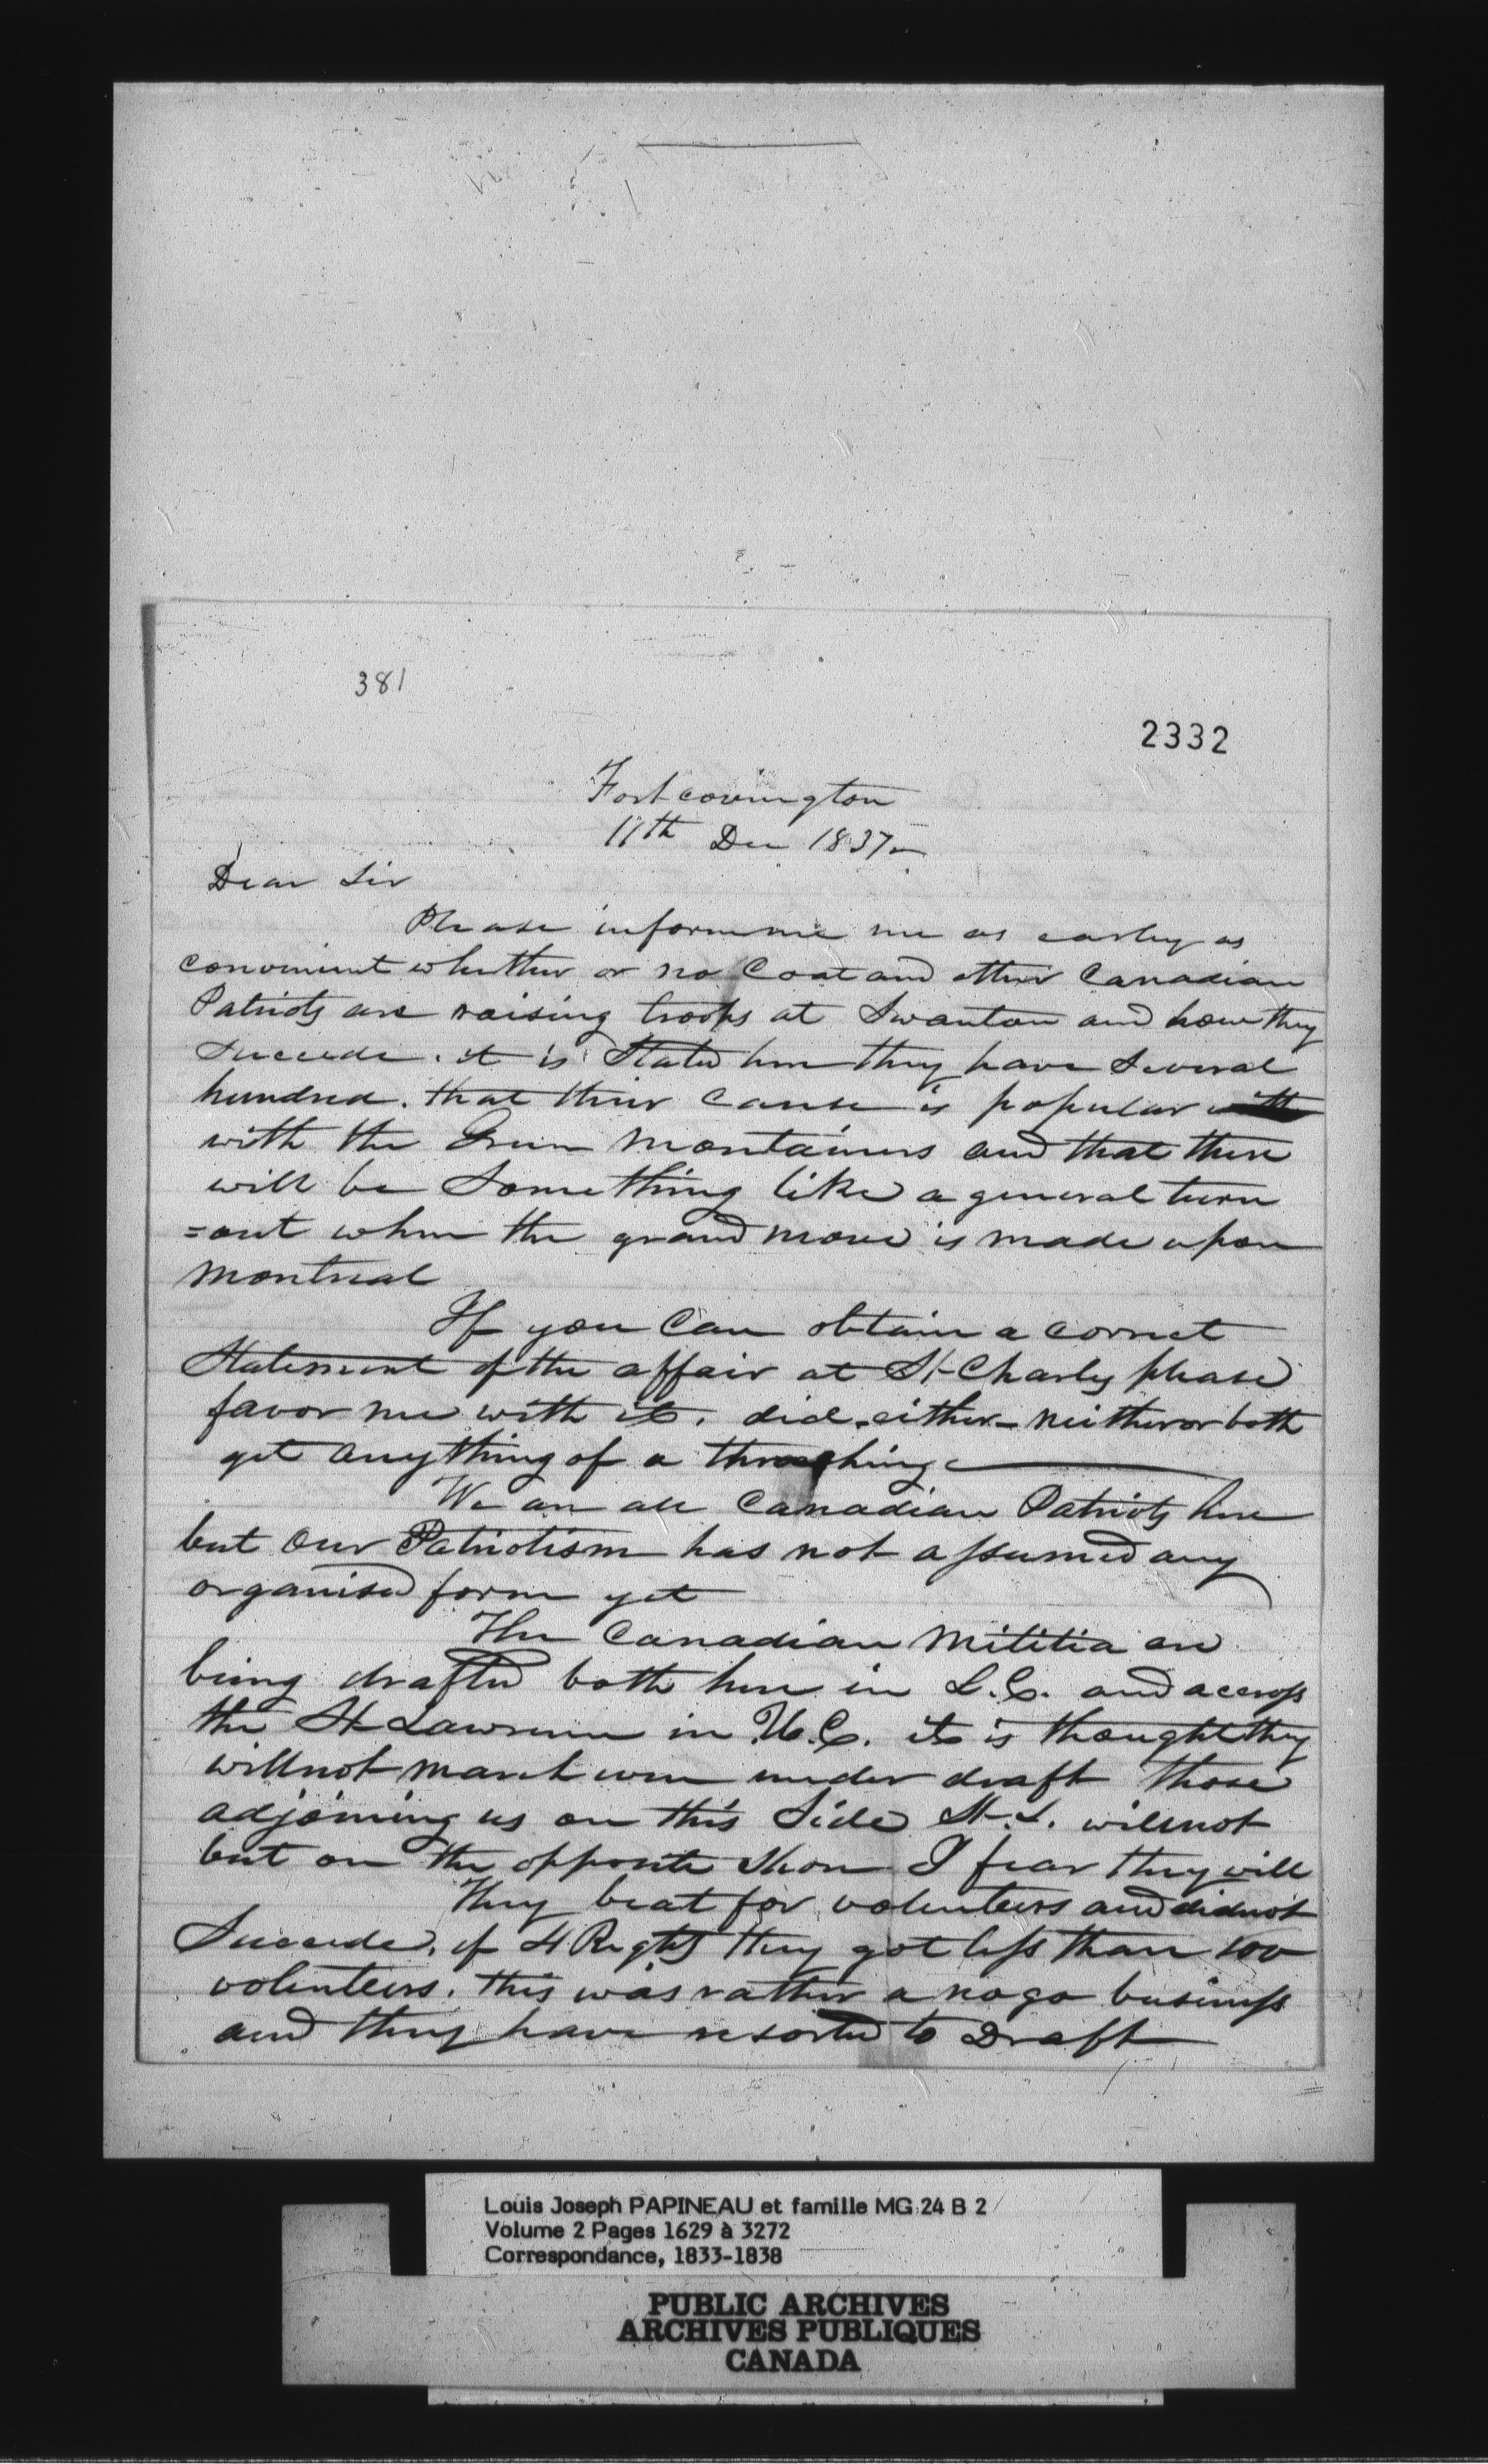 381
2332
Fort covington
11th Dec 1837
Dear Sir
Please inform me as early as
convenient whether or no Coat and other Canadian
Patriots are raising troops at Swanton and how they
Succede. it is Stated here they have Several
hundred. that their cause is popular with
with the Green Montainers and that there
will be Something like a general turn
=out when the grand move is made upon
Montreal
If you Can obtain a correct
Statement of the affair at St Charles please
favor me with it. did either neither or both
get anything of a thrashing
We are all Canadian Patriots here
but Our Patriotism has not assumed any
organised form yet
The Canadian Militia are
being drafted both here in L.C. and accross
the St Lawrence in U.C. it is thought they
will not march even under draft those
adjoining us on this Side St. L. will not
but on the opposite Shore I fear they will
They beat for volenteers and did not
Succede. of 4 Regts they got less than 100
volenteers. this was rather a no go business
and they have resorted to Draft
Louis Joseph PAPINEAU et famille MG 24 B 2
Volume 2 Pages 1629 à 3272
Correspondance, 1833-1838
PUBLIC ARCHIVES
ARCHIVES PUBLIQUES
CANADA